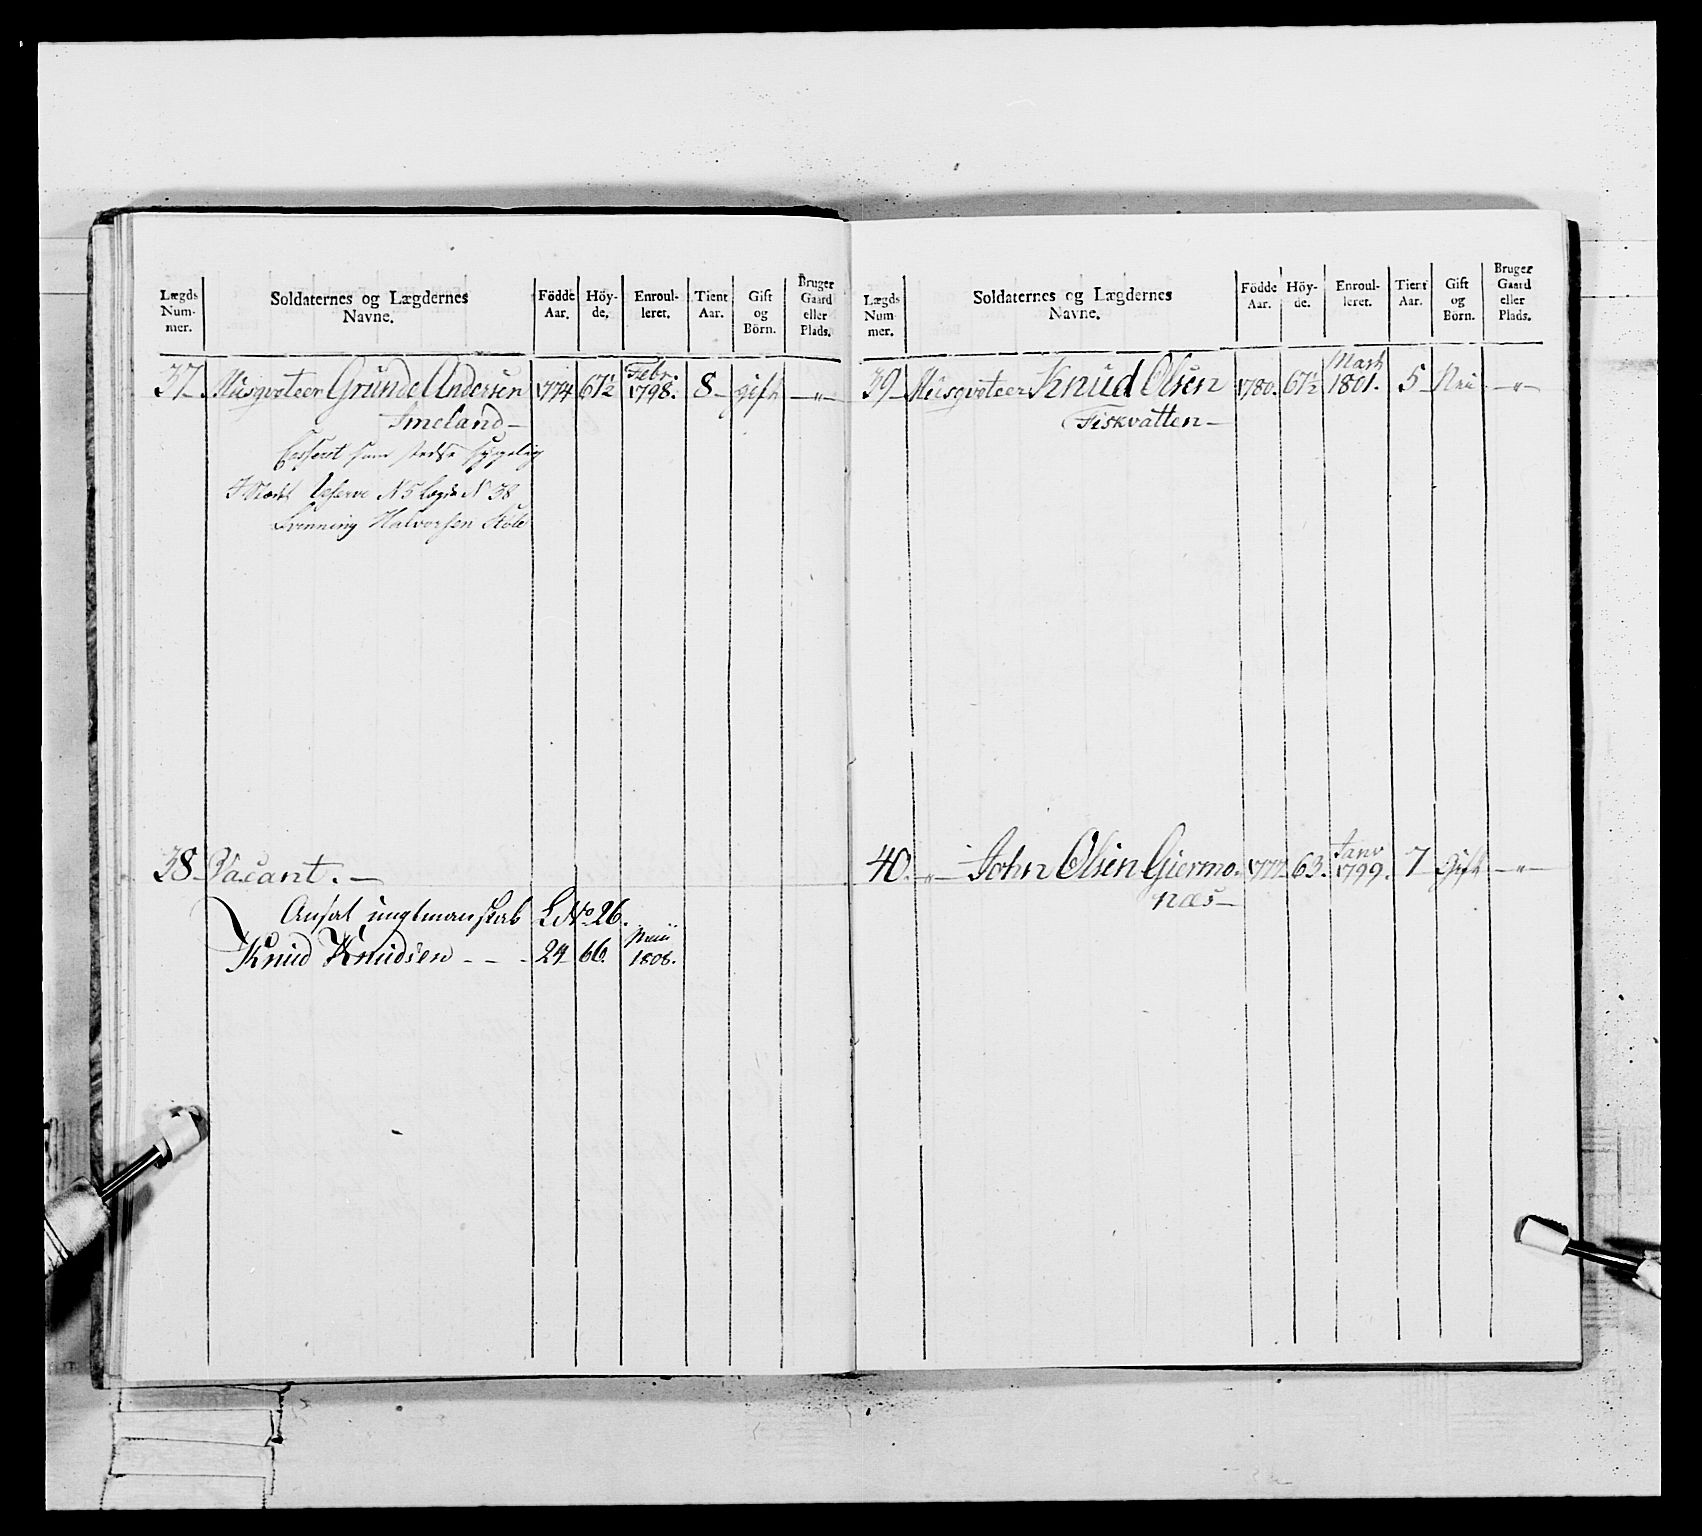 Lægds Num- mer. | Soldaternes og Lægdernes Navne. | Födde Aar. | Höy- de. | Enroul- leret. | Tient Aar. | Gift og Börn. | Bruger Gaard eller Plads.
37 Musqveteer Grunde Andersen 1774 61½ Febr. 1798. 8 gift "
Imeland
Casserit som stedse sygelig
N 5 N 38
Svenning Halvorsen
38 Vacant.
Ansat ungtmanskab L No 26.
Knud Knudsen 24 66. 1808.
Lægds Num- mer. | Soldaternes og Lægdernes Navne. | Födde Aar. | Höy- de. | Enroul- leret. | Tient Aar. | Gift og Börn. | Bruger Gaard eller Plads.
39 Musqveteer Knud Olsen 1780. 61½ Marti 1801. 5 Nei "
Fiskvatten
40. " John Olsen Giermo- 1777. 63. Janv 1799. 7 Gift "
næs